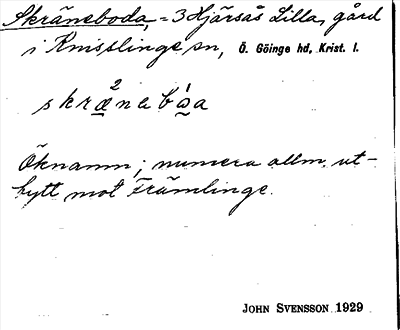 Skräneboda, = 3 Hjärsås Lilla, gård
i Knisslinge sn, Ö. Göinge hd, Krist. l.
skræ²neb¹oa
Öknamn; numera allm. ut-
bytt mot Främlinge.
JOHN SVENSSON 1929